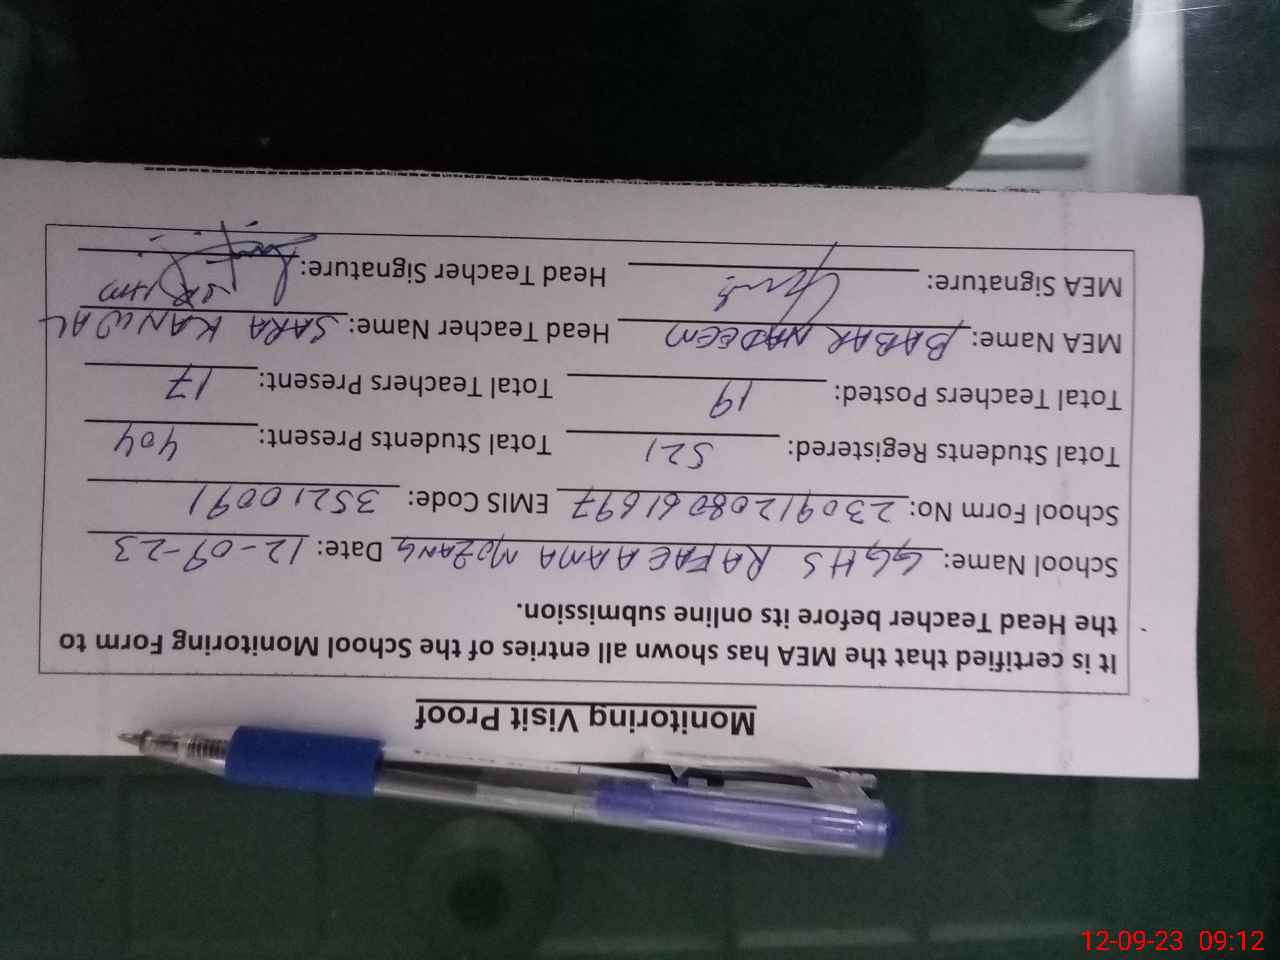 Monitoring Visit Proof
It is certified that the MEA has shown all entries of the School Monitoring Form to
the Head Teacher before its online submission.
School Name: GGHS RAFAE AAMA MOZANG Date: 12-09-23
School Form No: 2309120806 EMIS Code: 35210091
Total Students Registered: 521 Total Students Present: 404
Total Teachers Posted: 19 Total Teachers Present: 17
MEA Name: BABAR NADEEM Head Teacher Name: SARA KANWAL
MEA Signature: Head Teacher Signature:
12-09-23 09:12